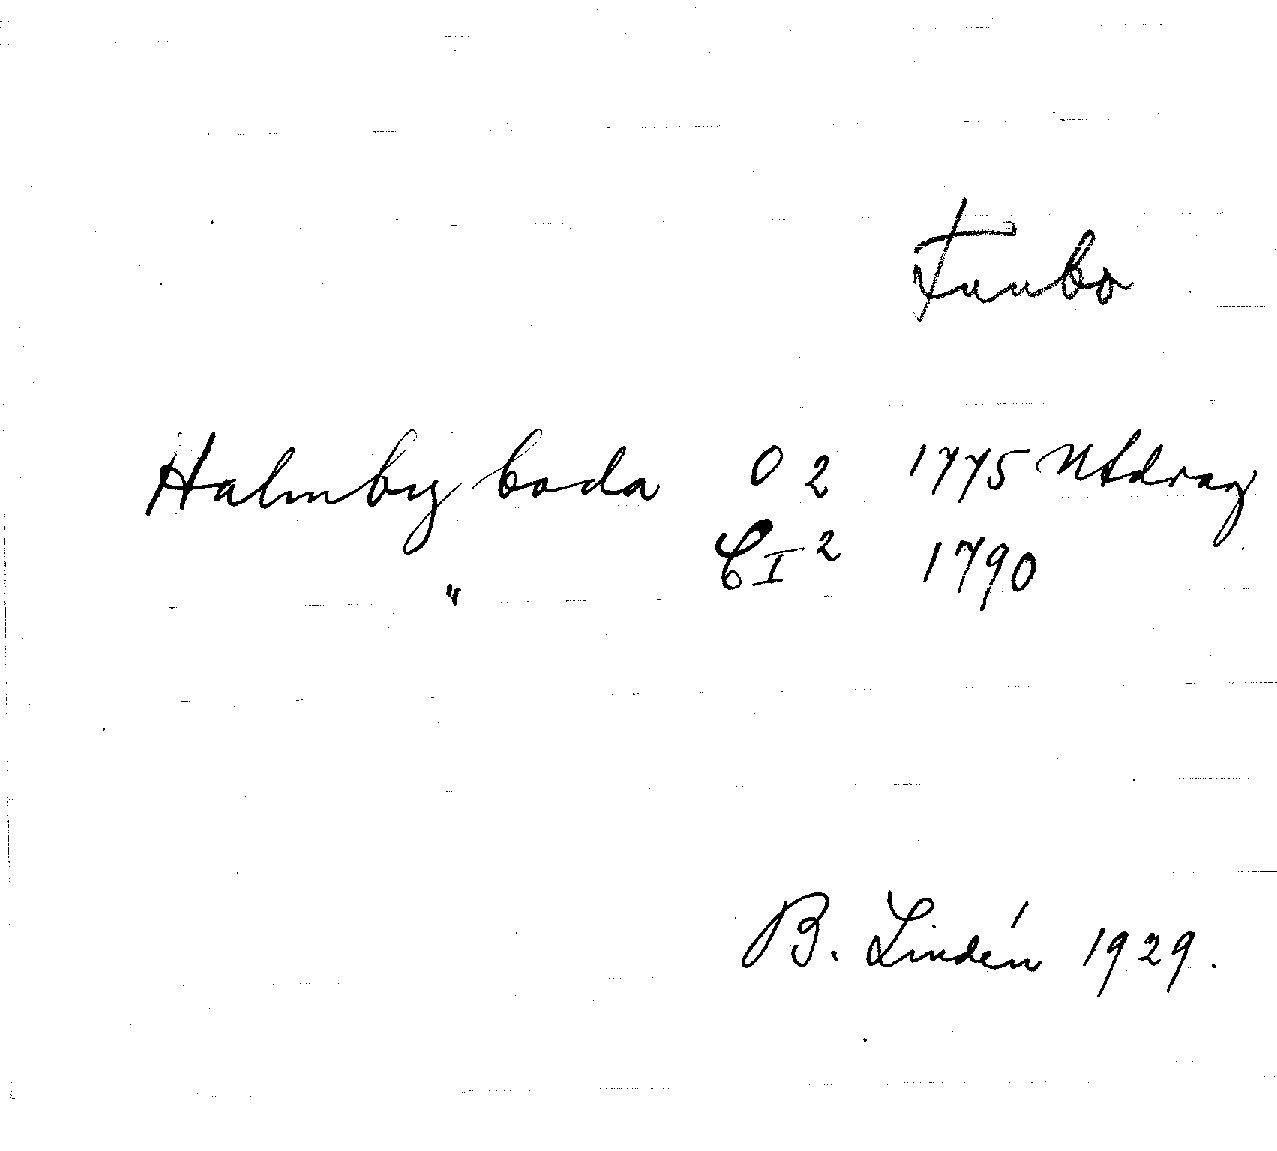 Funbo
Halmbyboda O 2 1775 Utdrag
" C I 2 1790
B. Lindén 1929.